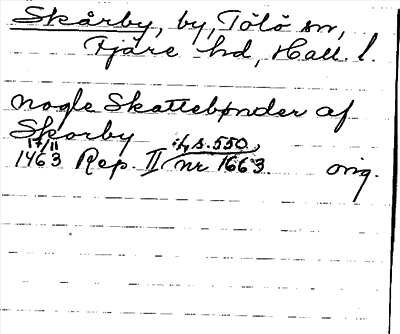 Skårby, by, Tölö sn,
Fjäre hd, Hall. l.
nogle Skattebønder af
Skorby
17/11 1463 Rep. II :1, s. 550, nr 1663. orig.